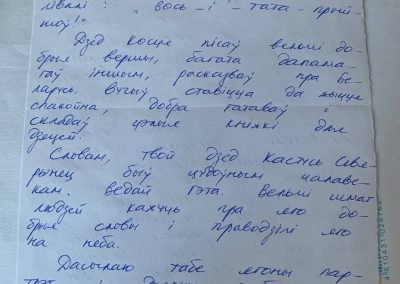 лівалі : "вось - і - тата - прый-
шоў!"
Дзед Косце пісаў вельмі до-
брыя вершы, багата дапама-
гаў іншым, расказваў пра Бе-
ларусь. Вучыў ставіцца да жыцця
спакойна, добра гатаваў і
складаў цэлыя кніжкі для
дзяцей.
Словам, твой дзед Кастусь Севя-
рынец быў цудоўным чалаве-
кам. Ведай гэта. Вельмі шмат
людзей кажуць пра яго до-
брыя словы і праводзілі яго
на неба.
Дасылаю табе ягоны пар-